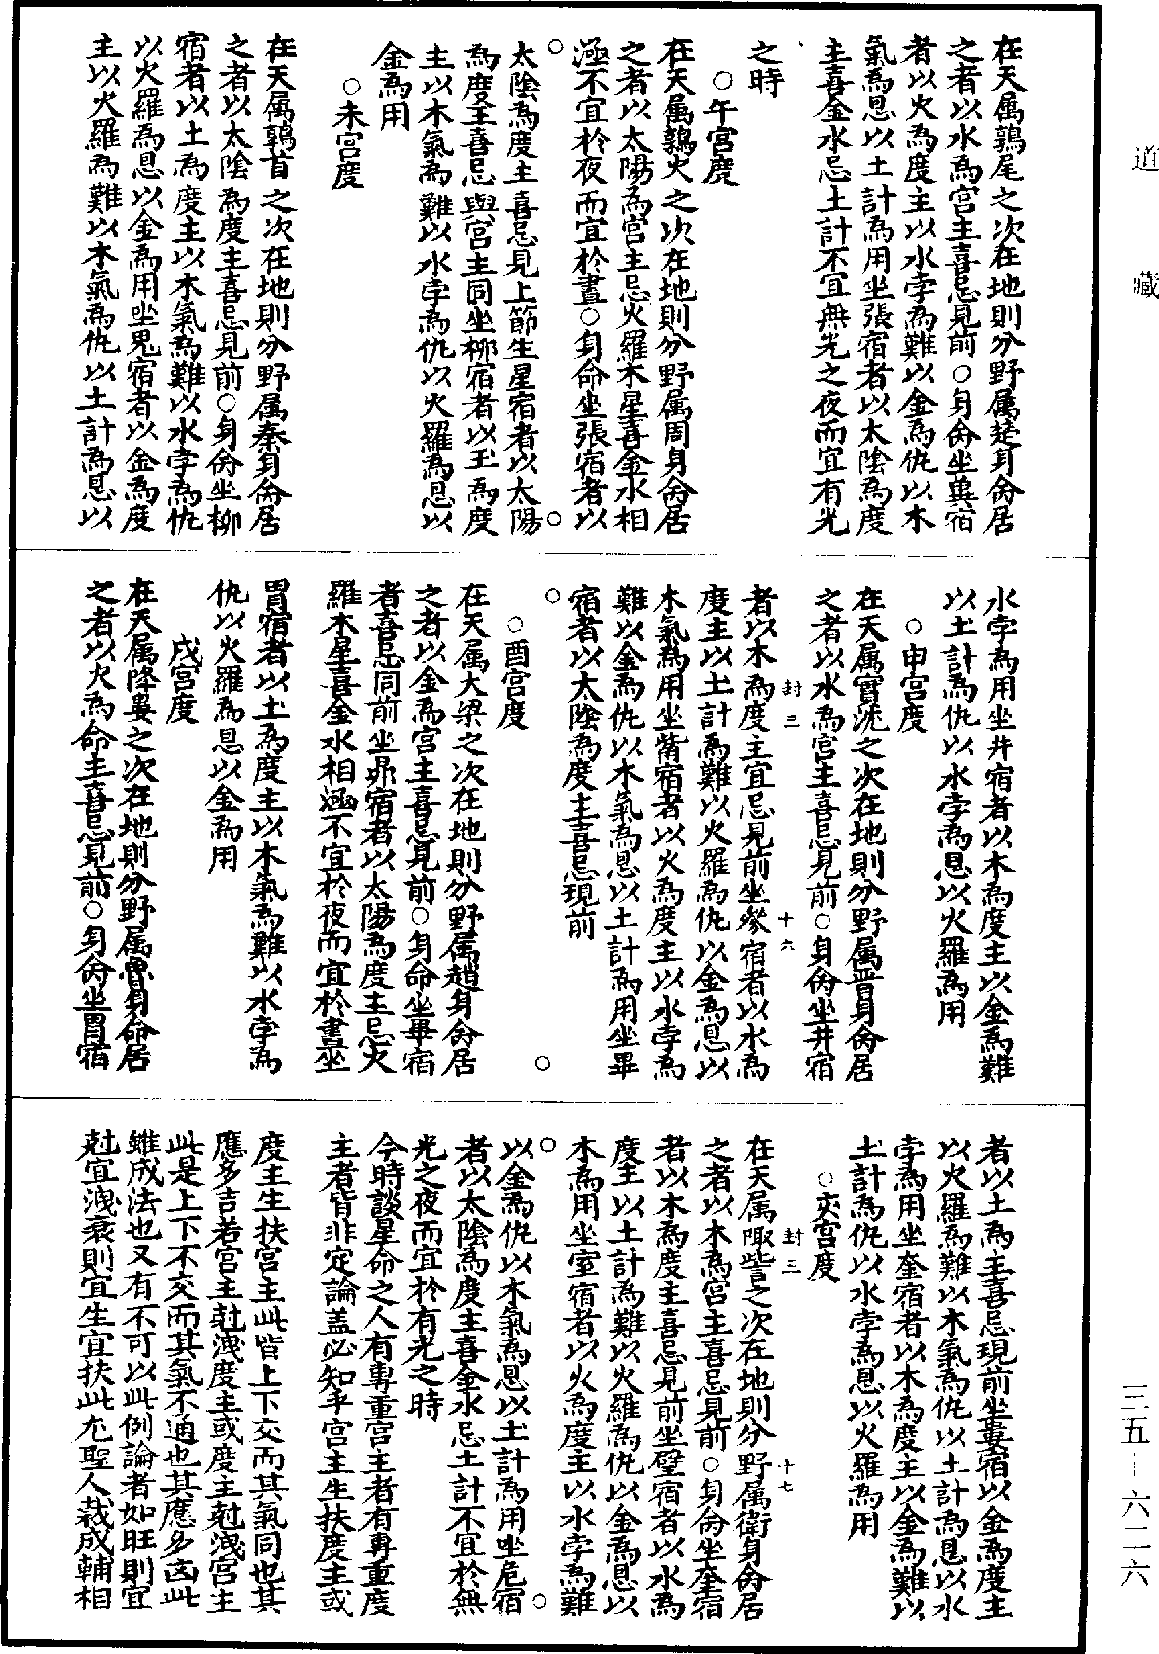 道藏
在天属鶉尾之次在地則分野属楚身命居
之者以水為宮主喜忌見前○身命坐翼宿
者以火為度主以水孛為難以金為仇以木
氣為恩以土計為用坐張宿者以太陰為度
主喜金水忌土計不宜無光之夜而宜有光
之時
○午宮度
在天属鶉火之次在地則分野属周身命居
之者以太陽為宮主忌火羅木星喜金水相
涵不宜於夜而宜於晝○身命坐張宿者以
太陰為度主喜忌見上節坐星宿者以太陽
為度主喜忌與宮主同坐柳宿者以土為度
主以木氣為難以水孛為仇以火羅為恩以
金為用
○未宮度
在天属鶉首之次在地則分野属秦身命居
之者以太陰為度主喜忌見前○身命坐柳
宿者以土為度主以木氣為難以水孛為仇
以火羅為恩以金為用坐鬼宿者以金為度
主以火羅為難以木氣為仇以土計為恩以
水孛為用坐井宿者以木為度主以金為難
以土計為仇以水孛為恩以火羅為用
○申宮度
在天属實沈之次在地則分野属晋身命居
之者以水為宮主喜忌見前○身命坐井宿
封三 十六
者以木為度主宜忌見前坐參宿者以水為
度主以土計為難以火羅為仇以金為恩以
木氣為用坐觜宿者以火為度主以水孛為
難以金為仇以木氣為恩以土計為用坐畢
宿者以太陰為度主喜忌現前
○酉宮度
在天属大梁之次在地則分野属趙身命居
之者以金為宮主喜忌見前○身命坐畢宿
者喜忌同前坐昴宿者以太陽為度主忌火
羅木星喜金水相涵不宜於夜而宜於晝坐
胃宿者以土為度主以木氣為難以水孛為
仇以火羅為恩以金為用
戌宮度
在天属降婁之次在地則分野属魯身命居
之者以火為命主喜忌見前○身命坐胃宿
者以土為主喜忌現前坐婁宿以金為度主
以火羅為難以木氣為仇以土計為恩以水
孛為用坐奎宿者以木為度主以金為難以
土計為仇以水孛為恩以火羅為用
○亥宮度
封三 十七
在天属陬訾之次在地則分野属衛身命居
之者以木為宮主喜忌見前○身命坐奎宿
者以木為度主喜忌見前坐壁宿者以水為
度主以土計為難以火羅為仇以金為恩以
木為用坐室宿者以火為度主以水孛為難
以金為仇以木氣為恩以土計為用坐危宿
者以太陰為度主喜金水忌土計不宜於無
光之夜而宜於有光之時
今時談星命之人有專重宮主者有專重度
主者皆非定論盖必知乎宮主生扶度主或
度主生扶宮主此皆上下交而其氣同也其
應多吉若宮主尅洩度主或度主尅洩宮主
此是上下不交而其氣不通也其應多凶此
雖成法也又有不可以此例論者如旺則宜
尅宜洩衰則宜生宜扶此尤聖人裁成輔相
三五—六二六